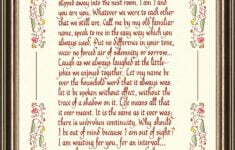 slipped away into the next room. I am I and
you are you. Whatever we were to each other
that we still are. Call me by my old familiar
name, speak to me in the easy way which you
always used. Put no difference in your tone,
wear no forced air of solemnity or sorrow...
Laugh as we always laughed at the little
jokes we enjoyed together. Let my name be
ever the household word that it always was
let it be spoken without effect, without the
trace of a shadow on it. Life means all that
it ever meant. It is the same as it ever was
there is unbroken continuity. Why should
I be out of mind because I am out of sight?
I am waiting for you, for an interval...